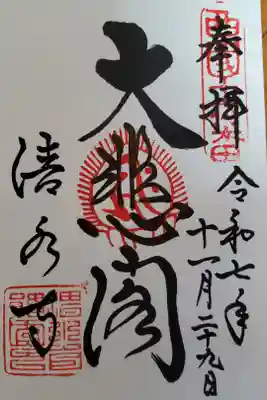 奉拝
令和七年
十一月二十九日
大悲閣
清水寺